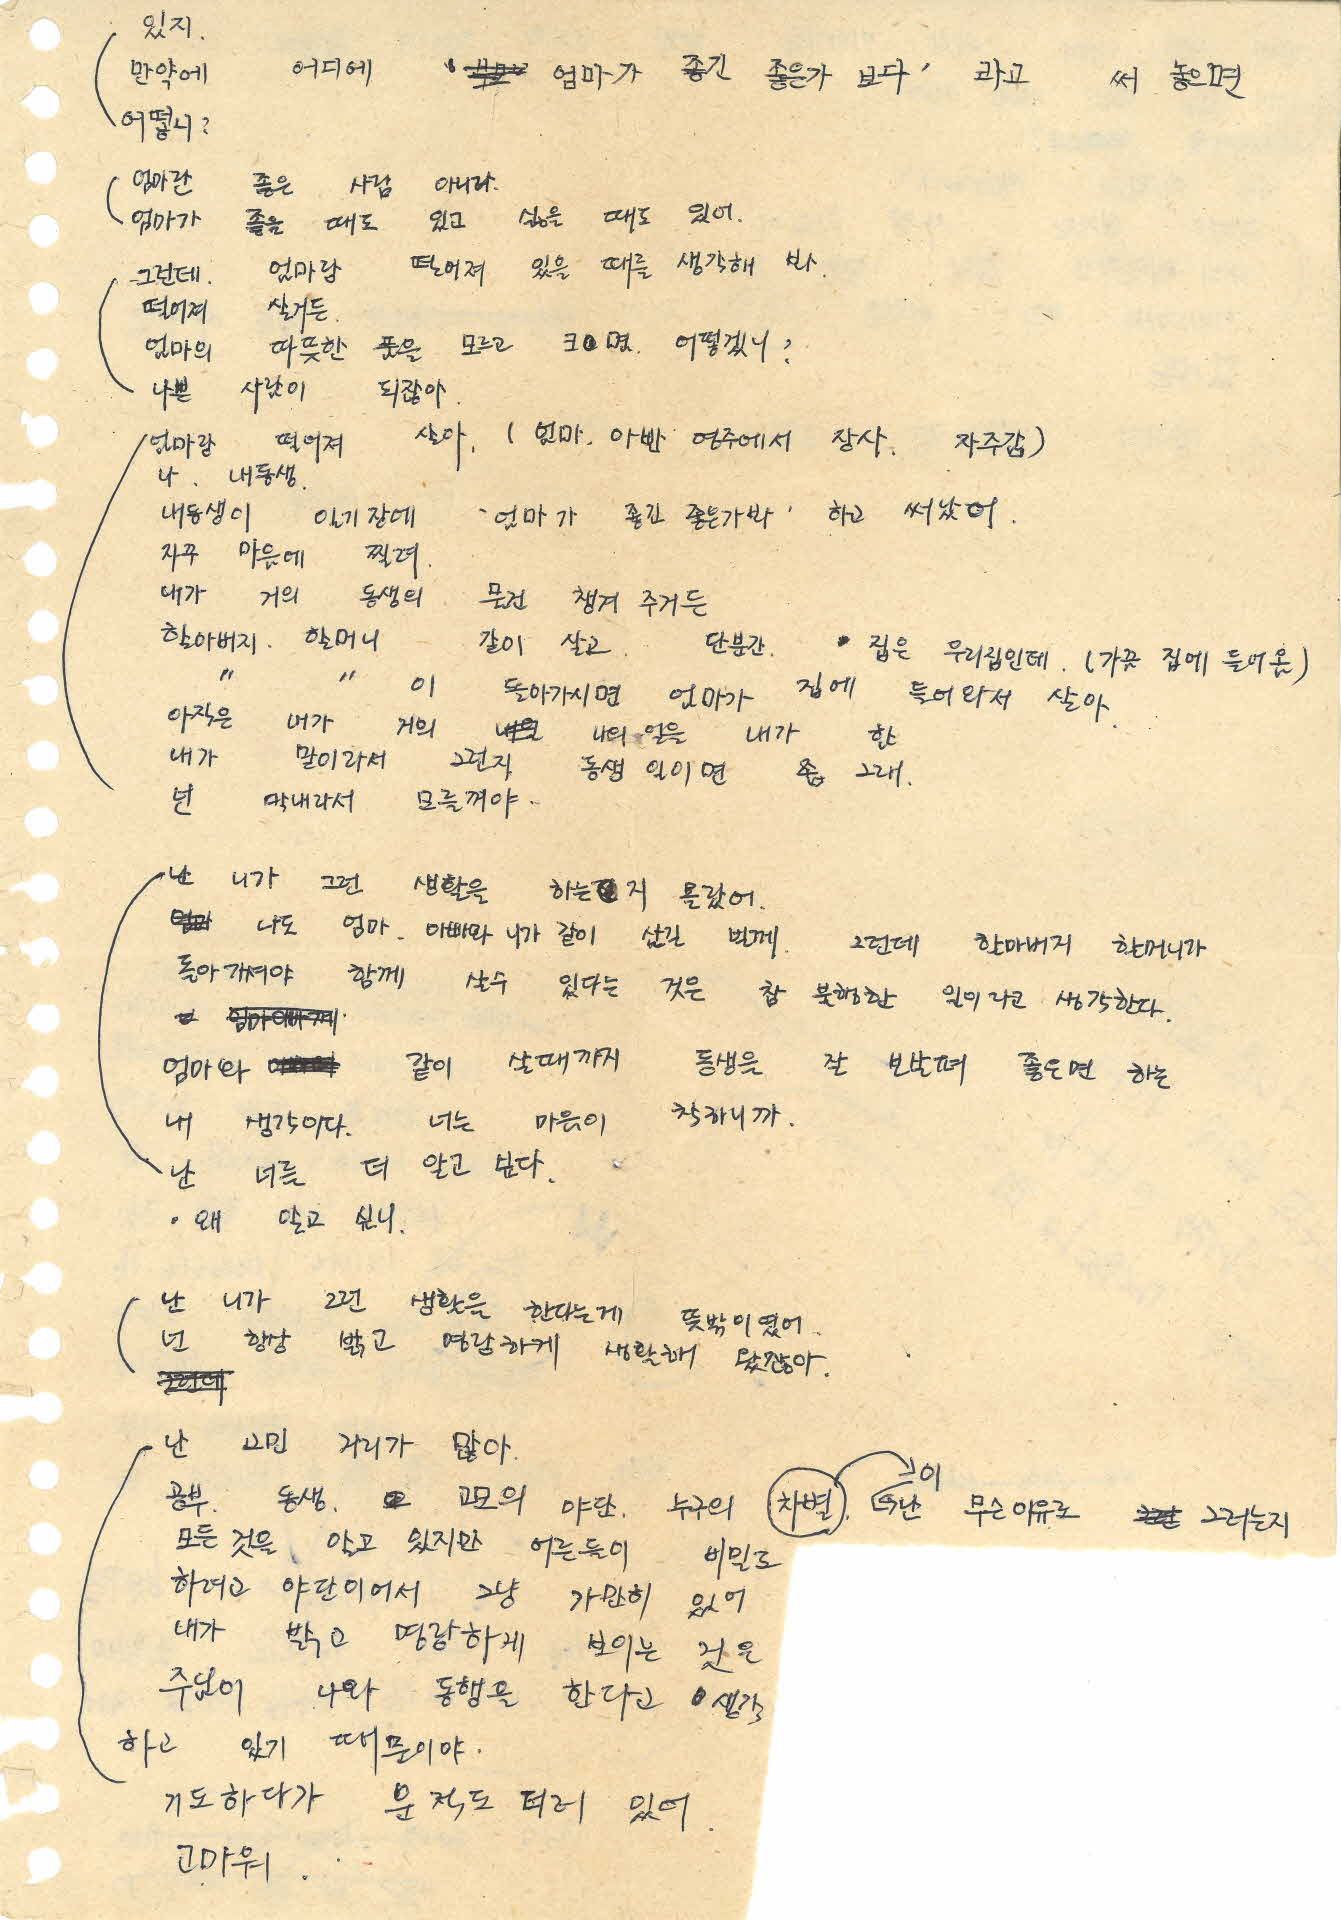 있지.
만약에 어디에 ' 엄마가 좋긴 좋은가 보다' 라고 써 놓으면
어떻니?
엄마란 좋은 사람 아니라.
엄마가 좋을 때도 있고 싫을 때도 있어.
그런데. 엄마랑 떨어져 있을 때를 생각해 봐.
떨어져 살거든.
엄마의 따뜻한 품을 모르고 크면. 어떻겠니?
나쁜 사람이 되잖아.
엄마랑 떨어져 살아. (엄마. 아빤 영주에서 장사. 자주감)
나. 내동생.
내동생이 일기장에 '엄마가 좋긴 좋은가봐' 하고 써놨어.
자꾸 마음에 찔려.
내가 거의 동생의 물건 챙겨 주거든
할아버지. 할머니 같이 살고. 단분간. 집은 우리집인데. (가끔 집에 들어옴)
" " 이 돌아가시면 엄마가 집에 들어와서 살아.
아직은 내가 거의 나의 일을 내가 함
내가 맏이라서 그런지 동생 일이면 좀 그래.
넌 막내라서 모를꺼야.
난 니가 그런 생활을 하는지 몰랐어.
나도 엄마. 아빠와 니가 같이 살길 빌께. 그런데 할아버지 할머니가
돌아가셔야 함께 살수 있다는 것은 참 불행한 일이라고 생각한다.
엄마와 같이 살때까지 동생을 잘 보살펴 좋으면 하는
내 생각이다. 너는 마음이 착하니까.
난 너를 더 알고 싶다.
· 왜 알고 싶니.
난 니가 그런 생활을 한다는게 뜻밖이였어.
넌 항상 밝고 명랑하게 생활해 왔잖아.
그런데
난 고민 거리가 많아.
공부. 동생. 고모의 야단. 누구의 차별. 이 난 무슨이유로 그러는지
모든것을 알고 있지만 어른들이 비밀로
하려고 야단이어서 그냥 가만히 있어
내가 밝고 명랑하게 보이는 것은
주님이 나와 동행을 한다고 생각
하고 있기 때문이야.
기도하다가 운적도 더러 있어.
고마워.